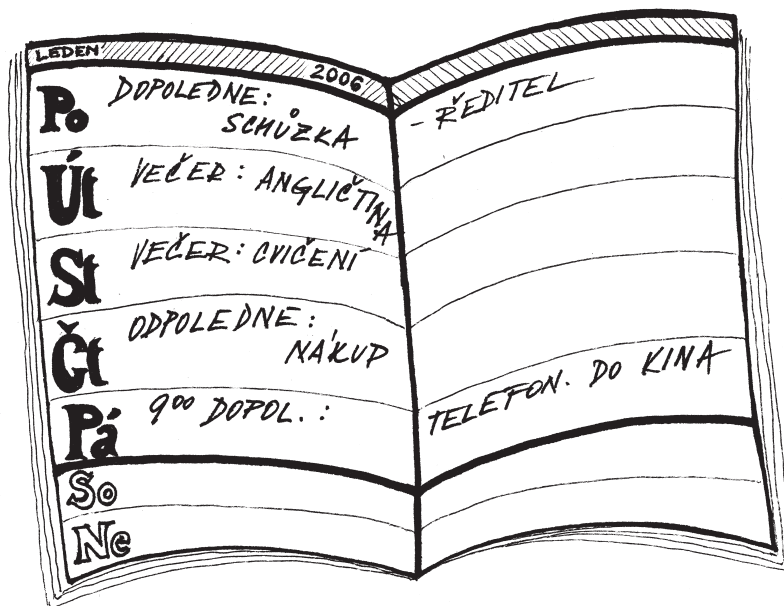 LEDEN
2006
Po DOPOLEDNE:
SCHŮZKA
- ŘEDITEL
Út VEČER: ANGLIČTINA
St VEČER: CVIČENÍ
Čt ODPOLEDNE:
NÁKUP
Pá 9⁰⁰ DOPOL. :
TELEFON. DO KINA
So
Ne